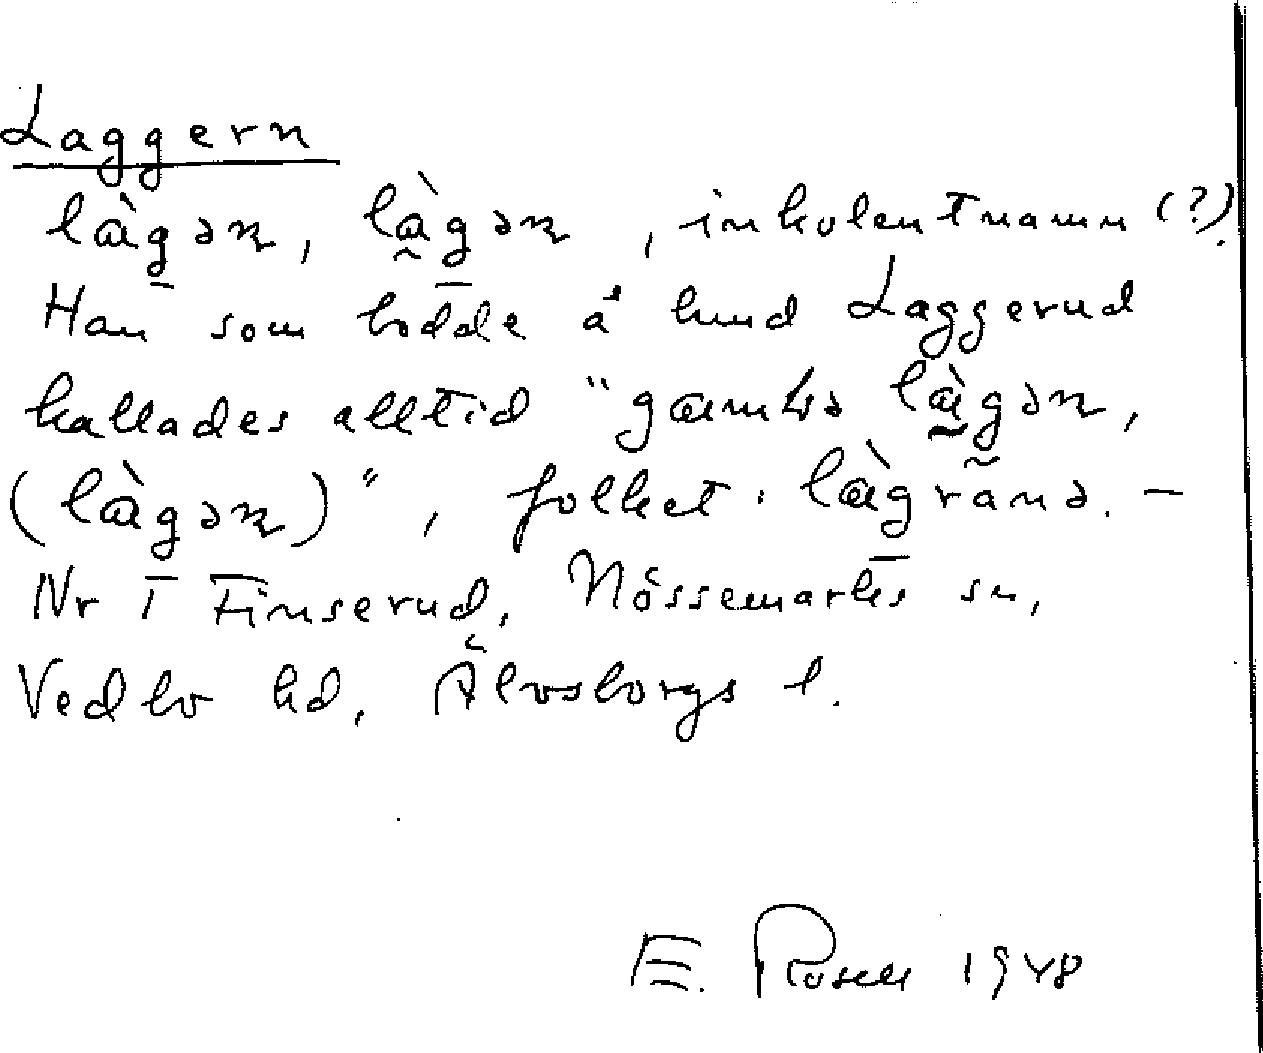 Laggern
là̀gən, là̀gən, inkolentnamn (?).
Han som bodde å lund Laggerud
kallades alltid "gamla làgən,
(làgən)", folket làgrana. –
Nr 1 Finserud, Nössemarks sn,
Vedbo hd, Älvsborgs l.
E. Rosell 1948